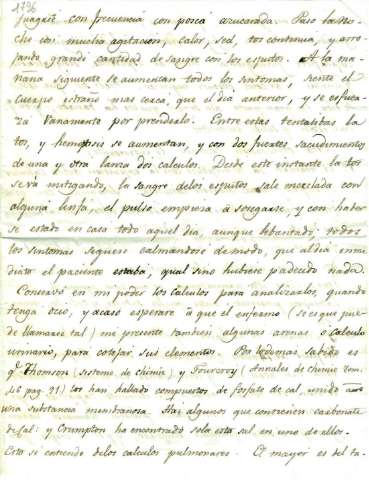 1796
juagase con frecuencia con posca azucarada. Paso la no-
che con mucha agitacion, calor, sed, tos continua, y arro-
jando grande cantidad de sangre con los esputos. A la ma-
ñana siguiente se aumentan todos los sintomas, siente el
cuerpo estraño mas cerca, que el dia anterior, y se esfuer-
za vanamente por prenderlo. Entre estas tentatibas la
tos, y hemoptisis se aumentan, y con dos fuertes sacudimientos
de una y otra lanza dos calculos. Desde este instante la tos
se va mitigando, la sangre de los esputos sale mezclada con
alguna linfa, el pulso empieza à sosegarse, y con haber
se estado en casa todo aquel dia, aunque lebantado, todos
los sintomas siguese calmandose de modo, que al dia inme
diato el paciente estaba, qual sino hubiese padecido nada.
Conservo en mi poder los calculos para analizarlos, quando
tenga ocio, y acaso esperare à que el enfermo (si es que pue-
de llamarse tal) me presente tambien algunas arenas o calculo
urinario, para cotejar sus elementos. Por lo demas, sabido es
qe. Thomson (sisteme de chimie) y Fourcroy (Annales de chimie tom.
16 pag. 91) los han hallado compuestos de fosfato de cal, unido
una substancia membranosa. Hay algunos que contienen carbonate
de cal: y Crumpton ha encontrado sola esta sal en uno de ellos.
Esto se entiende de los calculos pulmonares. El mayor es del ta-